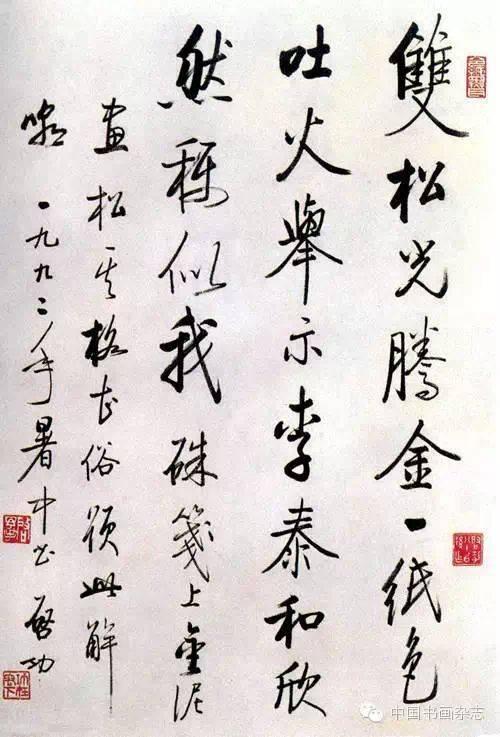 雙松光騰金一紙色
吐火舉示李泰和欣
然稱似我 硃箋上金泥
畫松其格甚俗此解
嘲 一九九二年暑中書 啓功
中国书画杂志